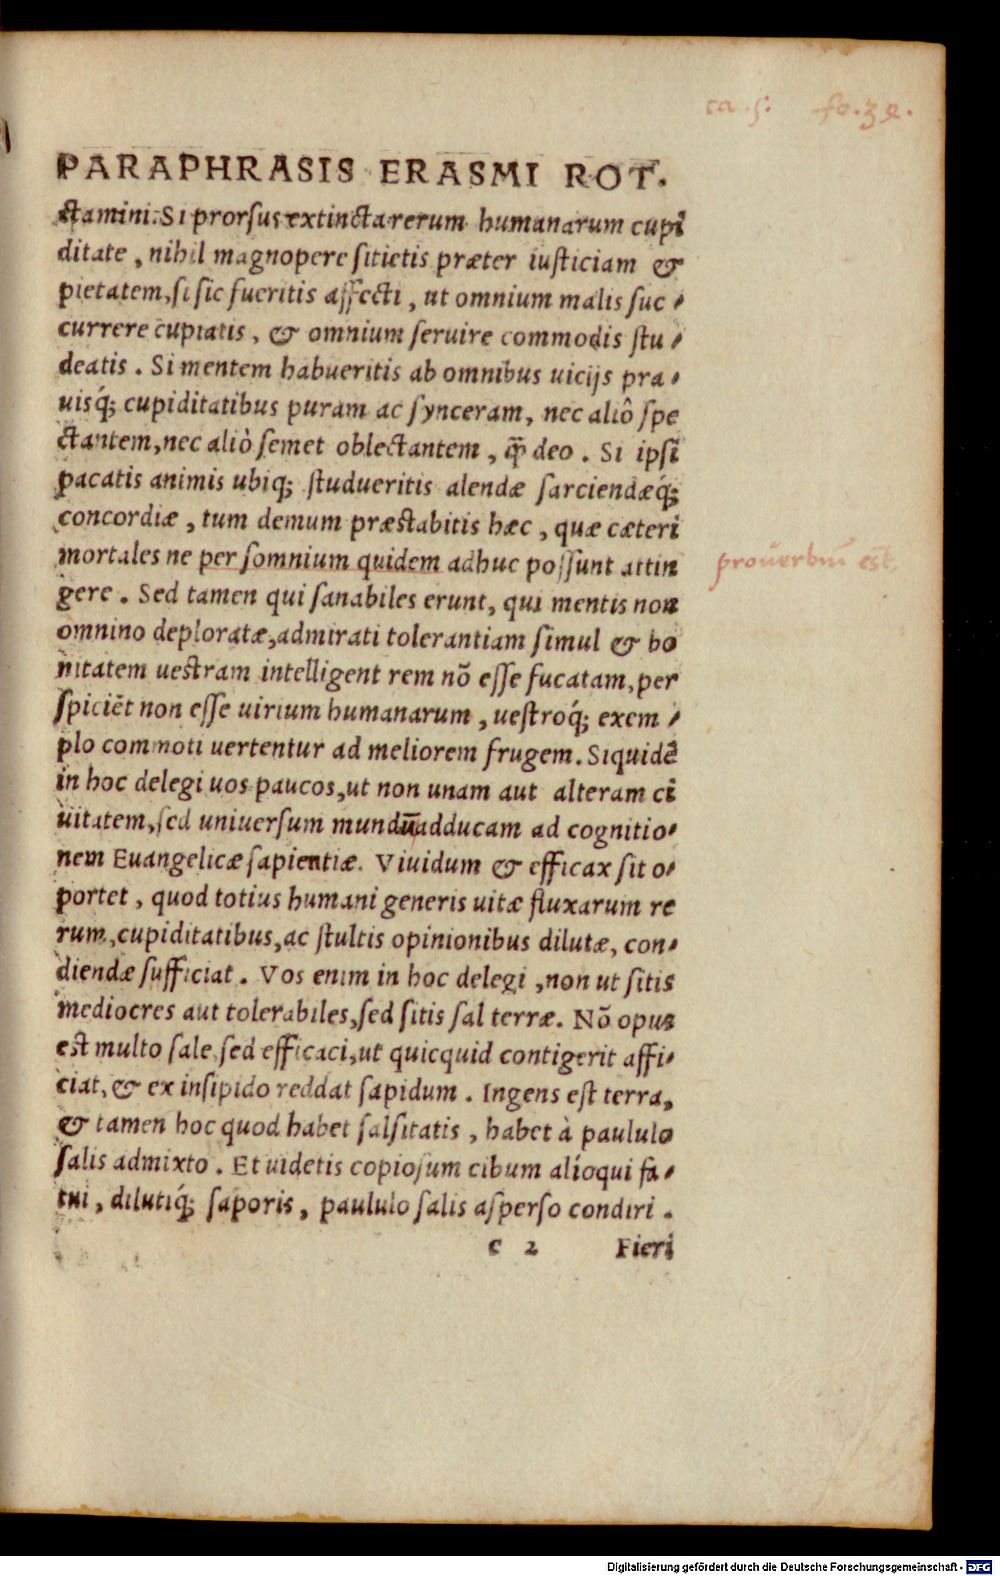 ca .5: fo. 32.
PARAPHRASIS ERASMI ROT.
ctamini. Si prorsus extincta rerum humanarum cupi
ditate, nihil magnopere sitietis præter iusticiam &
pietatem, si sic fueritis affecti, ut omnium malis suc-
currere cupiatis, & omnium seruire commodis stu-
deatis. Si mentem habueritis ab omnibus uicijs pra-
uisq́; cupiditatibus puram ac synceram, nec aliô spe
ctantem, nec aliò semet oblectantem, q̃̄ deo. Si ipsi
pacatis animis ubiq; studueritis alendæ sarciendæq́;
concordiæ, tum demum præstabitis hæc, quæ cæteri
mortales ne per somnium quidem adhuc possunt attin
prouerbiū est
gere. Sed tamen qui sanabiles erunt, qui mentis non
omnino deploratæ, admirati tolerantiam simul & bo
nitatem uestram intelligent rem nō esse fucatam, per
spiciēt non esse uirium humanarum, uestroq́; exem-
plo commoti uertentur ad meliorem frugem. Siquidē
in hoc delegi uos paucos, ut non unam aut alteram ci
uitatem, sed uniuersum mundū adducam ad cognitio-
nem Euangelicæ sapientiæ. Viuidum & efficax sit o-
portet, quod totius humani generis uitæ fluxarum re
rum, cupiditatibus, ac stultis opinionibus dilutæ, con-
diendæ sufficiat. Vos enim in hoc delegi, non ut sitis
mediocres aut tolerabiles, sed sitis sal terræ. Nō opus
est multo sale, sed efficaci, ut quicquid contigerit affi-
ciat, & ex insipido reddat sapidum. Ingens est terra,
& tamen hoc quod habet salsitatis, habet à paululo
salis admixto. Et uidetis copiosum cibum alioqui fa-
tui, dilutiq́; saporis, paululo salis asperso condiri.
c 2 Fieri
Digitalisierung gefördert durch die Deutsche Forschungsgemeinschaft - DFG